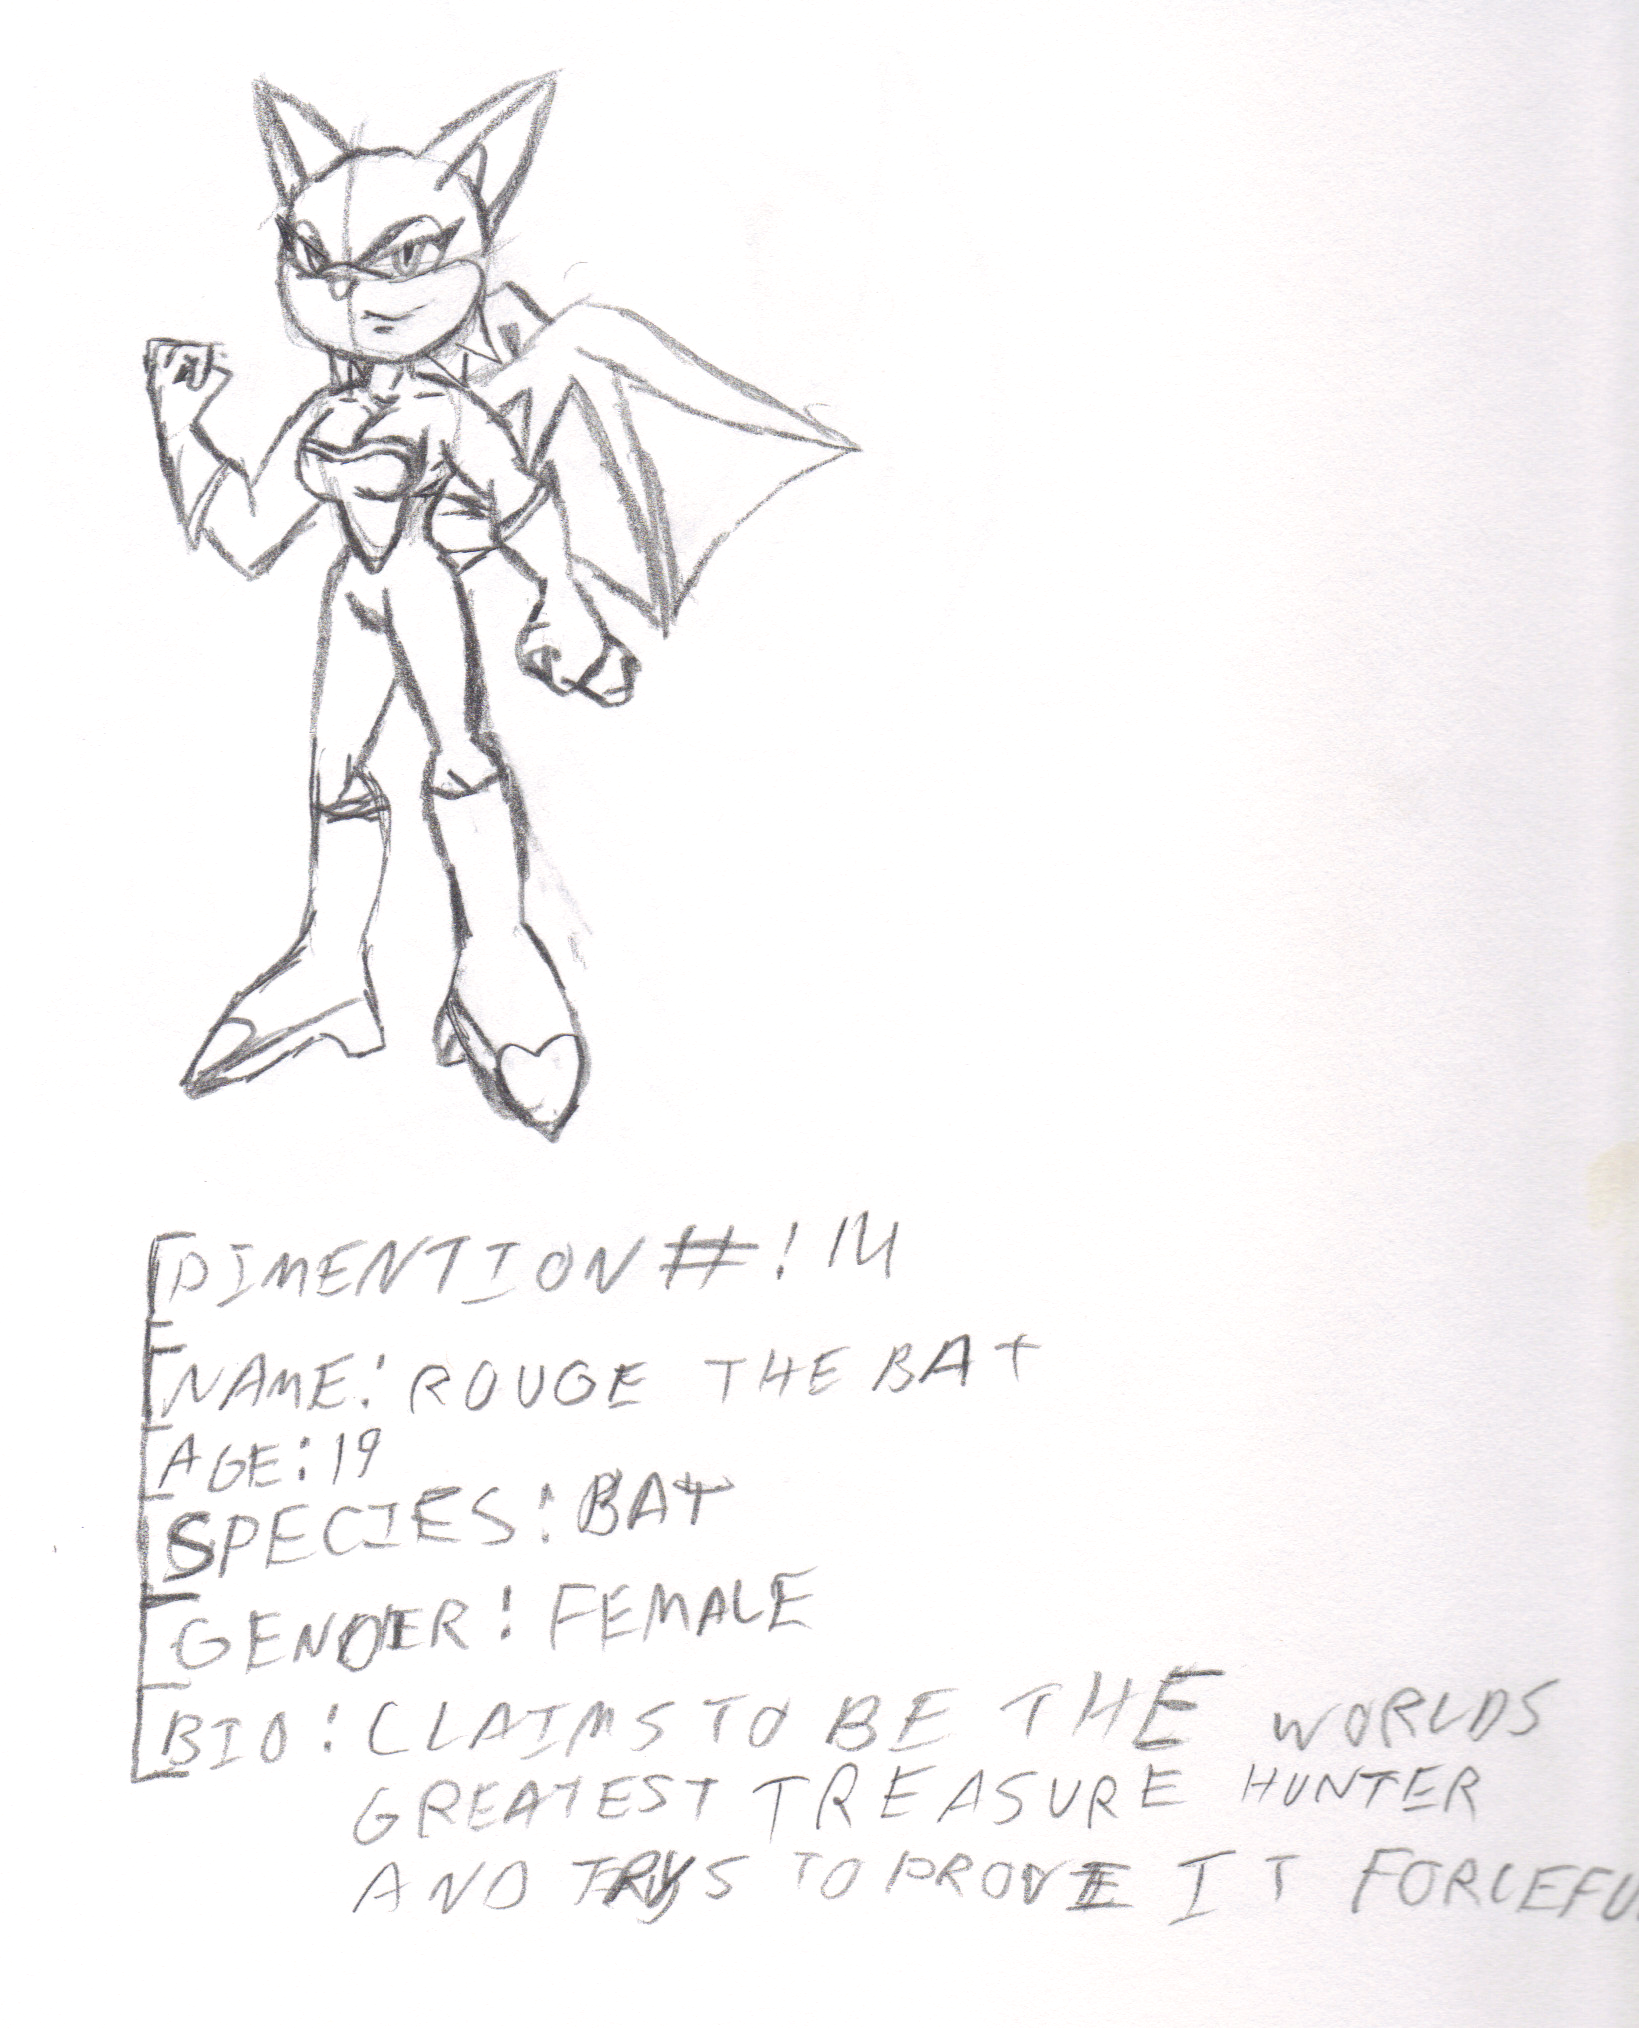 DIMENTION #: 14
NAME: ROUGE THE BAT
AGE: 19
SPECIES: BAT
GENDER: FEMALE
BIO: CLAIMS TO BE THE WORLDS
GREATEST TREASURE HUNTER
AND TRYS TO PROVE IT FORCEFU